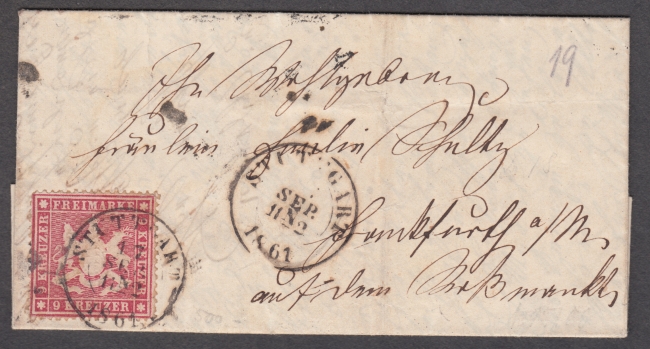 19
Ihr Wohlgeboren
Fräulein Emilie Schultz
Frankfurth a/M.
auf dem Roßmarkt
STUTTGART
SEP.
1861
FREIMARKE
9 KREUZER
KREUZER
9 KREUZER
STUTTGART
1861